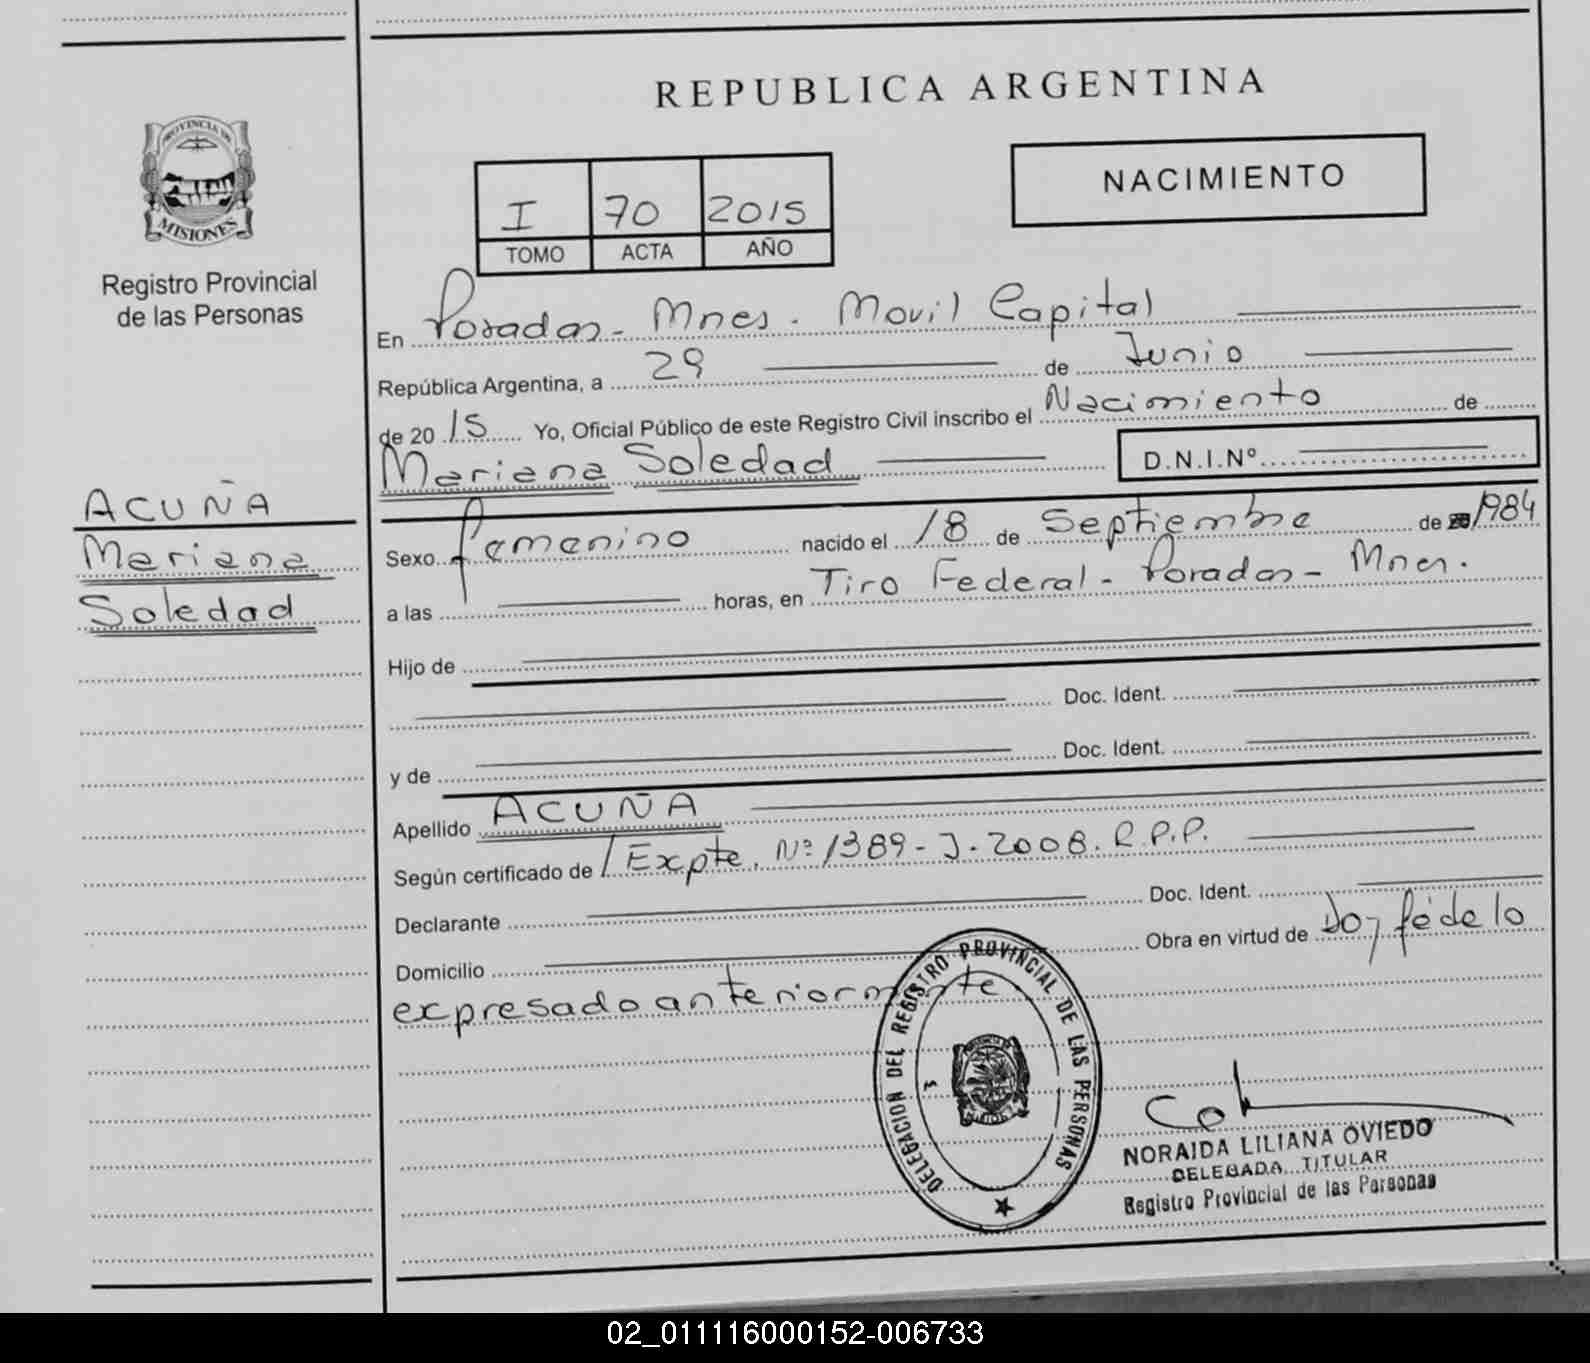 REPUBLICA ARGENTINA
PROVINCIA DE
MISIONES
Registro Provincial
de las Personas
I 70 2015
TOMO ACTA AÑO
NACIMIENTO
En Posadas - Mnes. Movil Capital
República Argentina, a 29 de Junio
de 20 15 Yo, Oficial Público de este Registro Civil inscribo el Nacimiento de
Mariana Soledad D.N.I.Nº
ACUÑA
Mariana
Soledad
Sexo femenino nacido el 18 de Septiembre de 1984
a las horas, en Tiro Federal - Posadas - Mnes.
Hijo de
Doc. Ident.
y de Doc. Ident.
Apellido ACUÑA
Según certificado de / Expte. Nº 1389 - J - 2008. R.P.P.
Declarante Doc. Ident.
Domicilio Obra en virtud de Doy fé de lo
expresado anteriormente
DELEGACION DEL REGISTRO PROVINCIAL DE LAS PERSONAS
NORAIDA LILIANA OVIEDO
DELEGADA TITULAR
Registro Provincial de las Personas
02_011116000152-006733